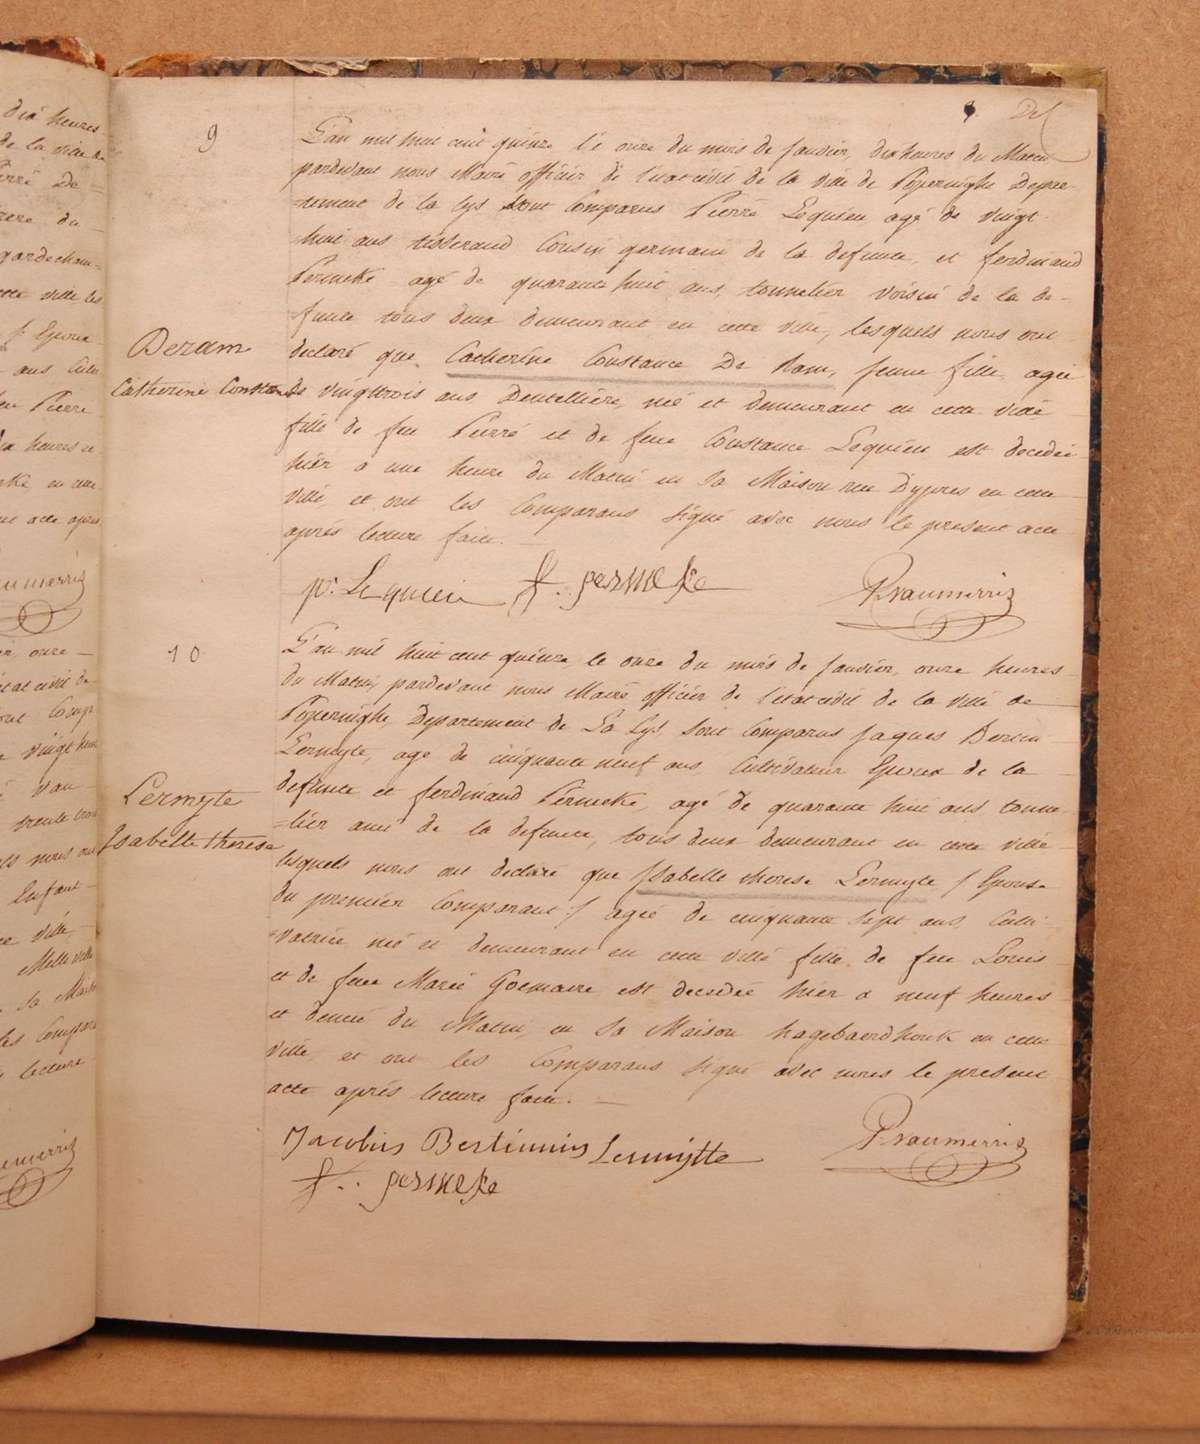 dix heures
de la ville de
Pierre De =
gardecham=
cette ville les
ans Culti
feu Pierre
dix heures et
acte apres
9
L'an mil huit cent quinze le onze du mois de Janvier, dix heures du Matin
pardevant nous Maire officier de l'etat civil de la ville de Poperinghe Depar-
-tement de la Lys sont Comparus Pierre Lequieu agé de vingt
huit ans tisserand Cousin germain de la defunte, et ferdinand
Permeke agé de quarante huit ans, tonnelier voisin de la de-
funte tous deux demeurant en cette ville, lesquels nous ont
declaré que Catherine Constance De Ram, jeune fille agée
Deram
Catherine Constance
de vingttrois ans Dentellière, née et demeurant en cette ville
fille de feu Pierre et de feue Constance Lequieu est decedée
hier a une heure du Matin en sa Maison rue D'ypres en cette
ville, et ont les Comparans signé avec nous le present acte
après lecture faite. —
p: Lequieu f: permeke
10
L'an mil huit cent quinze le onze du mois de Janvier, onze heures
du Matin, pardevant nous Maire officier de l'etat civil de la ville de
Poperinghe, Departement de La Lys, sont Comparus Jaques Bertin
Lermyte, agé de cinquante neuf ans, Cultivateur Epoux de la
defunte et ferdinand Permeke, agé de quarante huit ans tonne-
Lermyte
Isabelle therese
=lier ami de la defunte, tous deux demeurant en cette ville
lesquels nous ont declaré que Isabelle therese Lermyte / Epouse
du premier Comparant :/ agée de cinquante sept ans, Culti-
=vatrice née et demeurant en cette ville fille de feu Louis
et de feue Marie Goemaere est decedée hier a neuf heures
et demie du Matin, en sa Maison hagebaerdhouk en cette
ville, et ont les Comparans signé avec nous le present
acte après lecture faite. —
Jacobus Bertinnus Lermytte
f: permeke
vingt huit
trente trois
Enfant
ville,
sa Maison
les Comparans
lecture